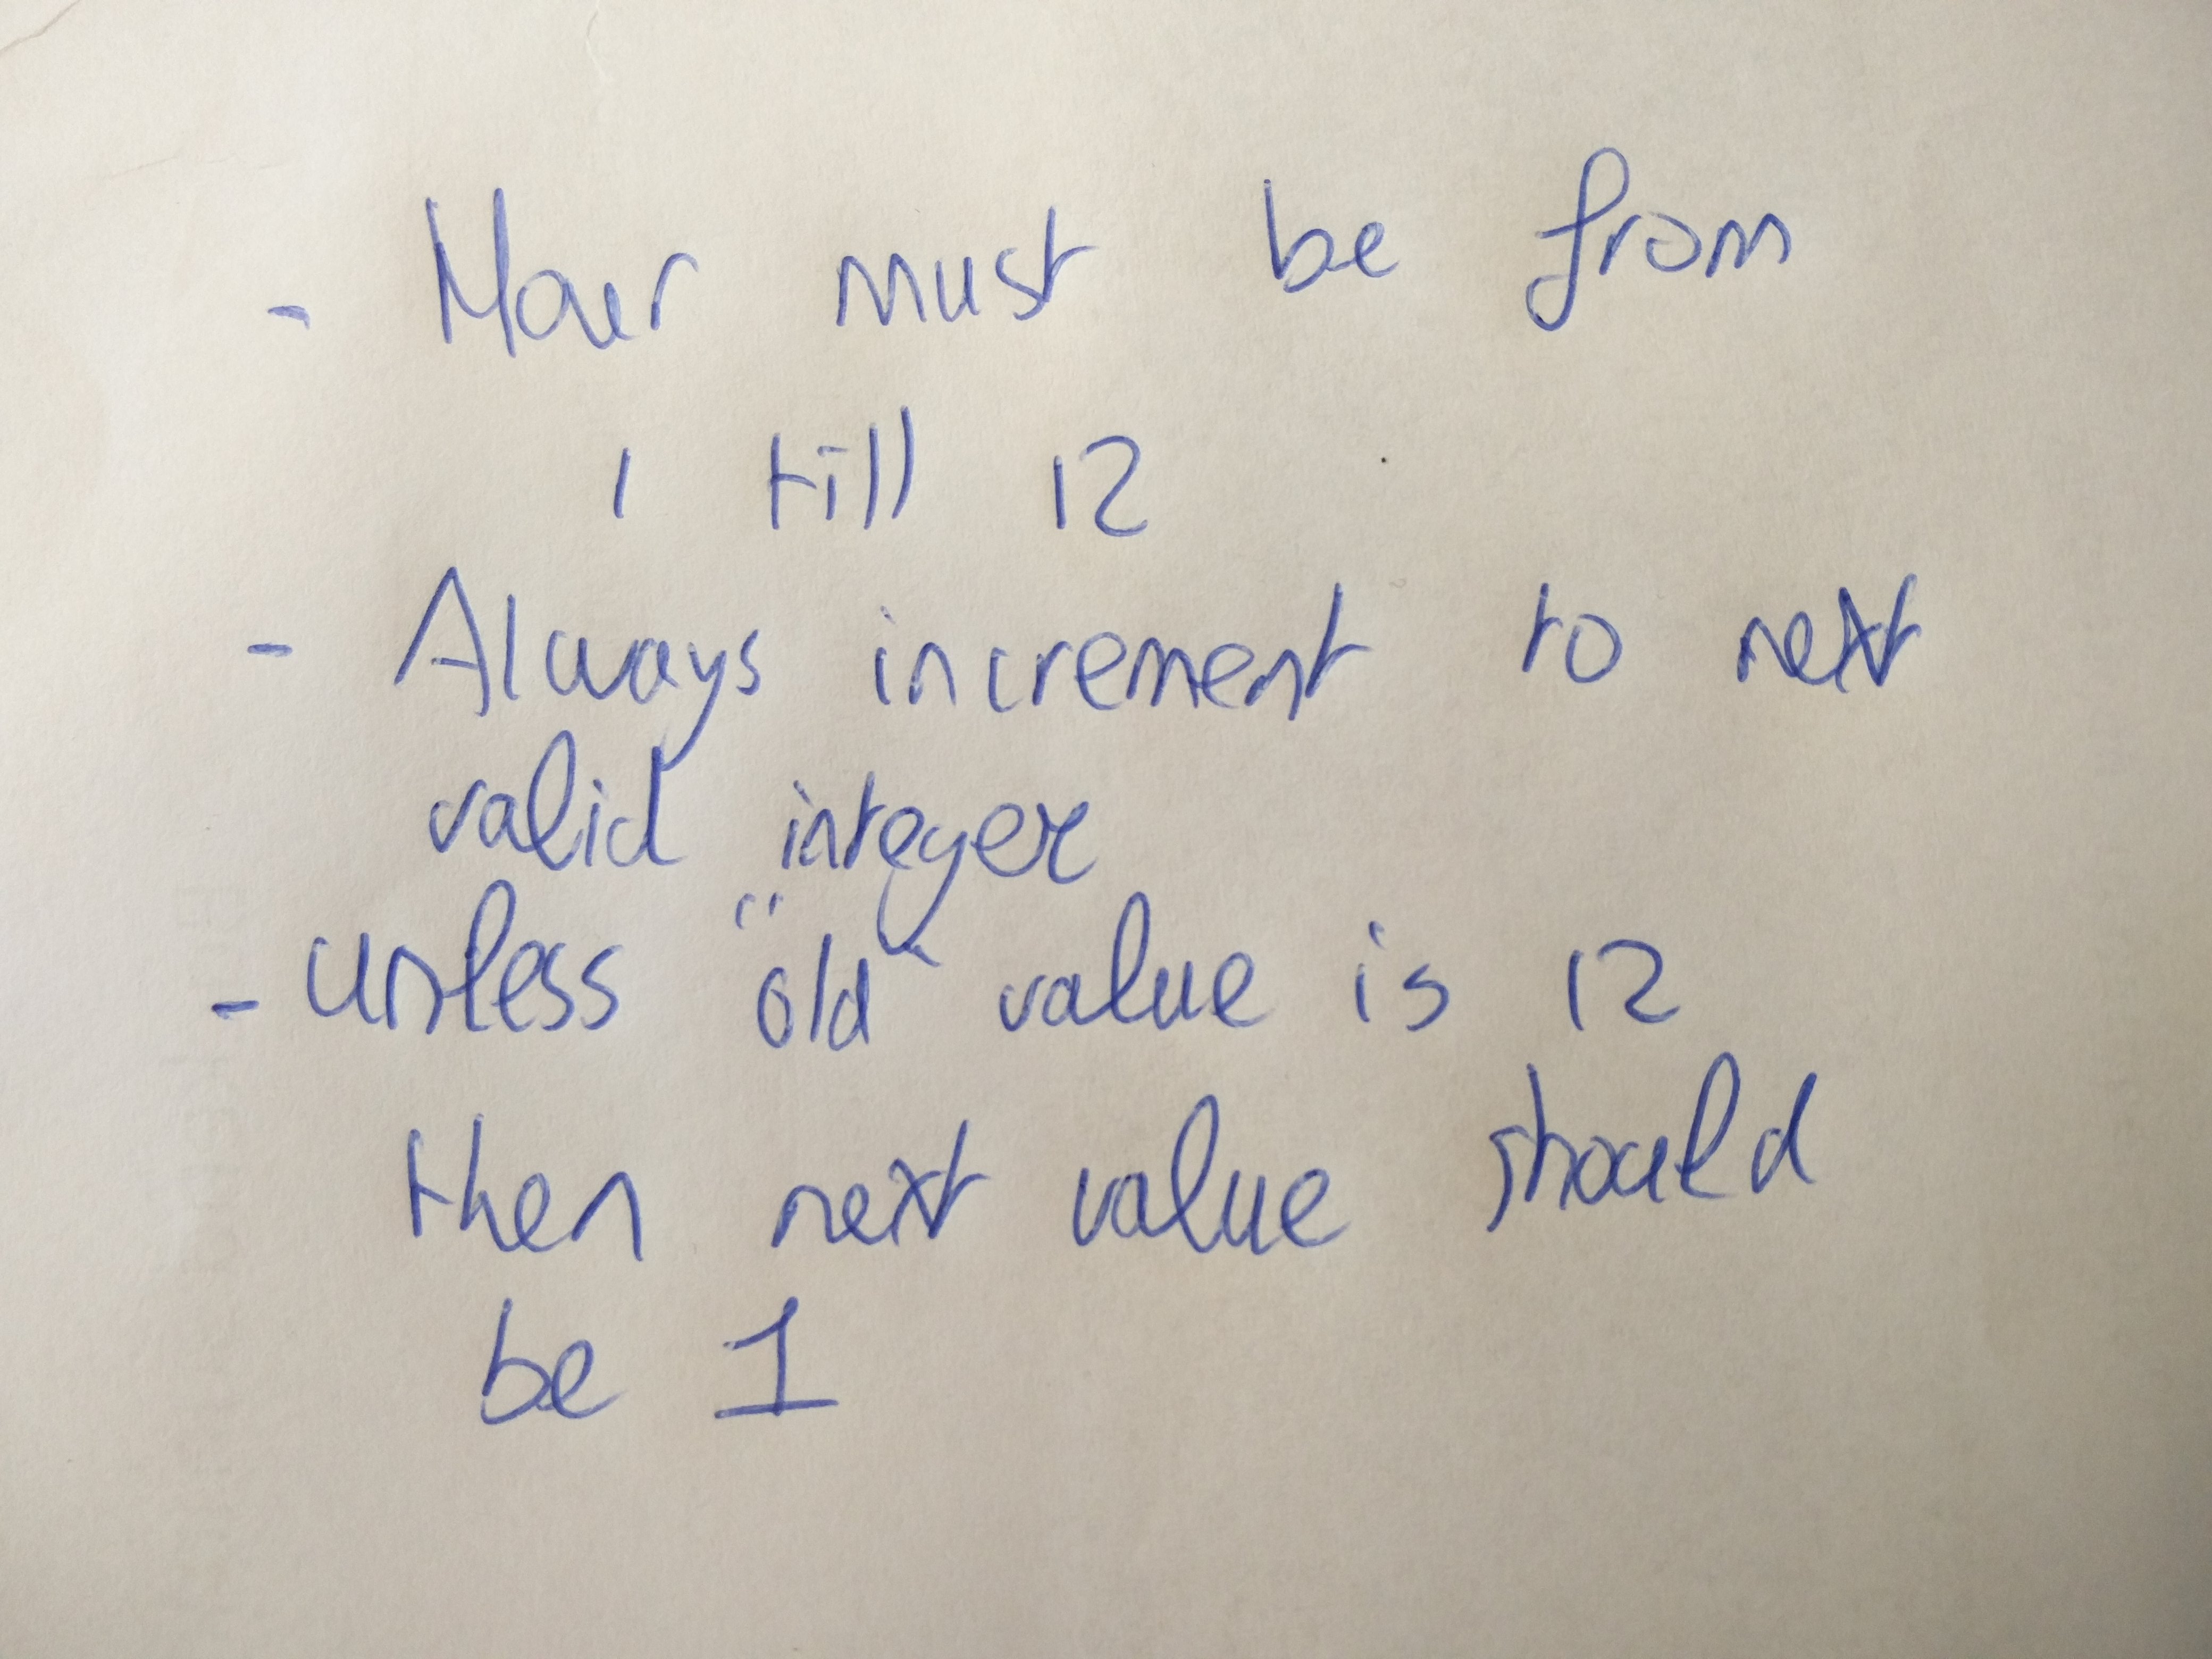 - Hour must be from
1 till 12
- Always increment to next
valid integer
- unless "old" value is 12
then next value should
be 1